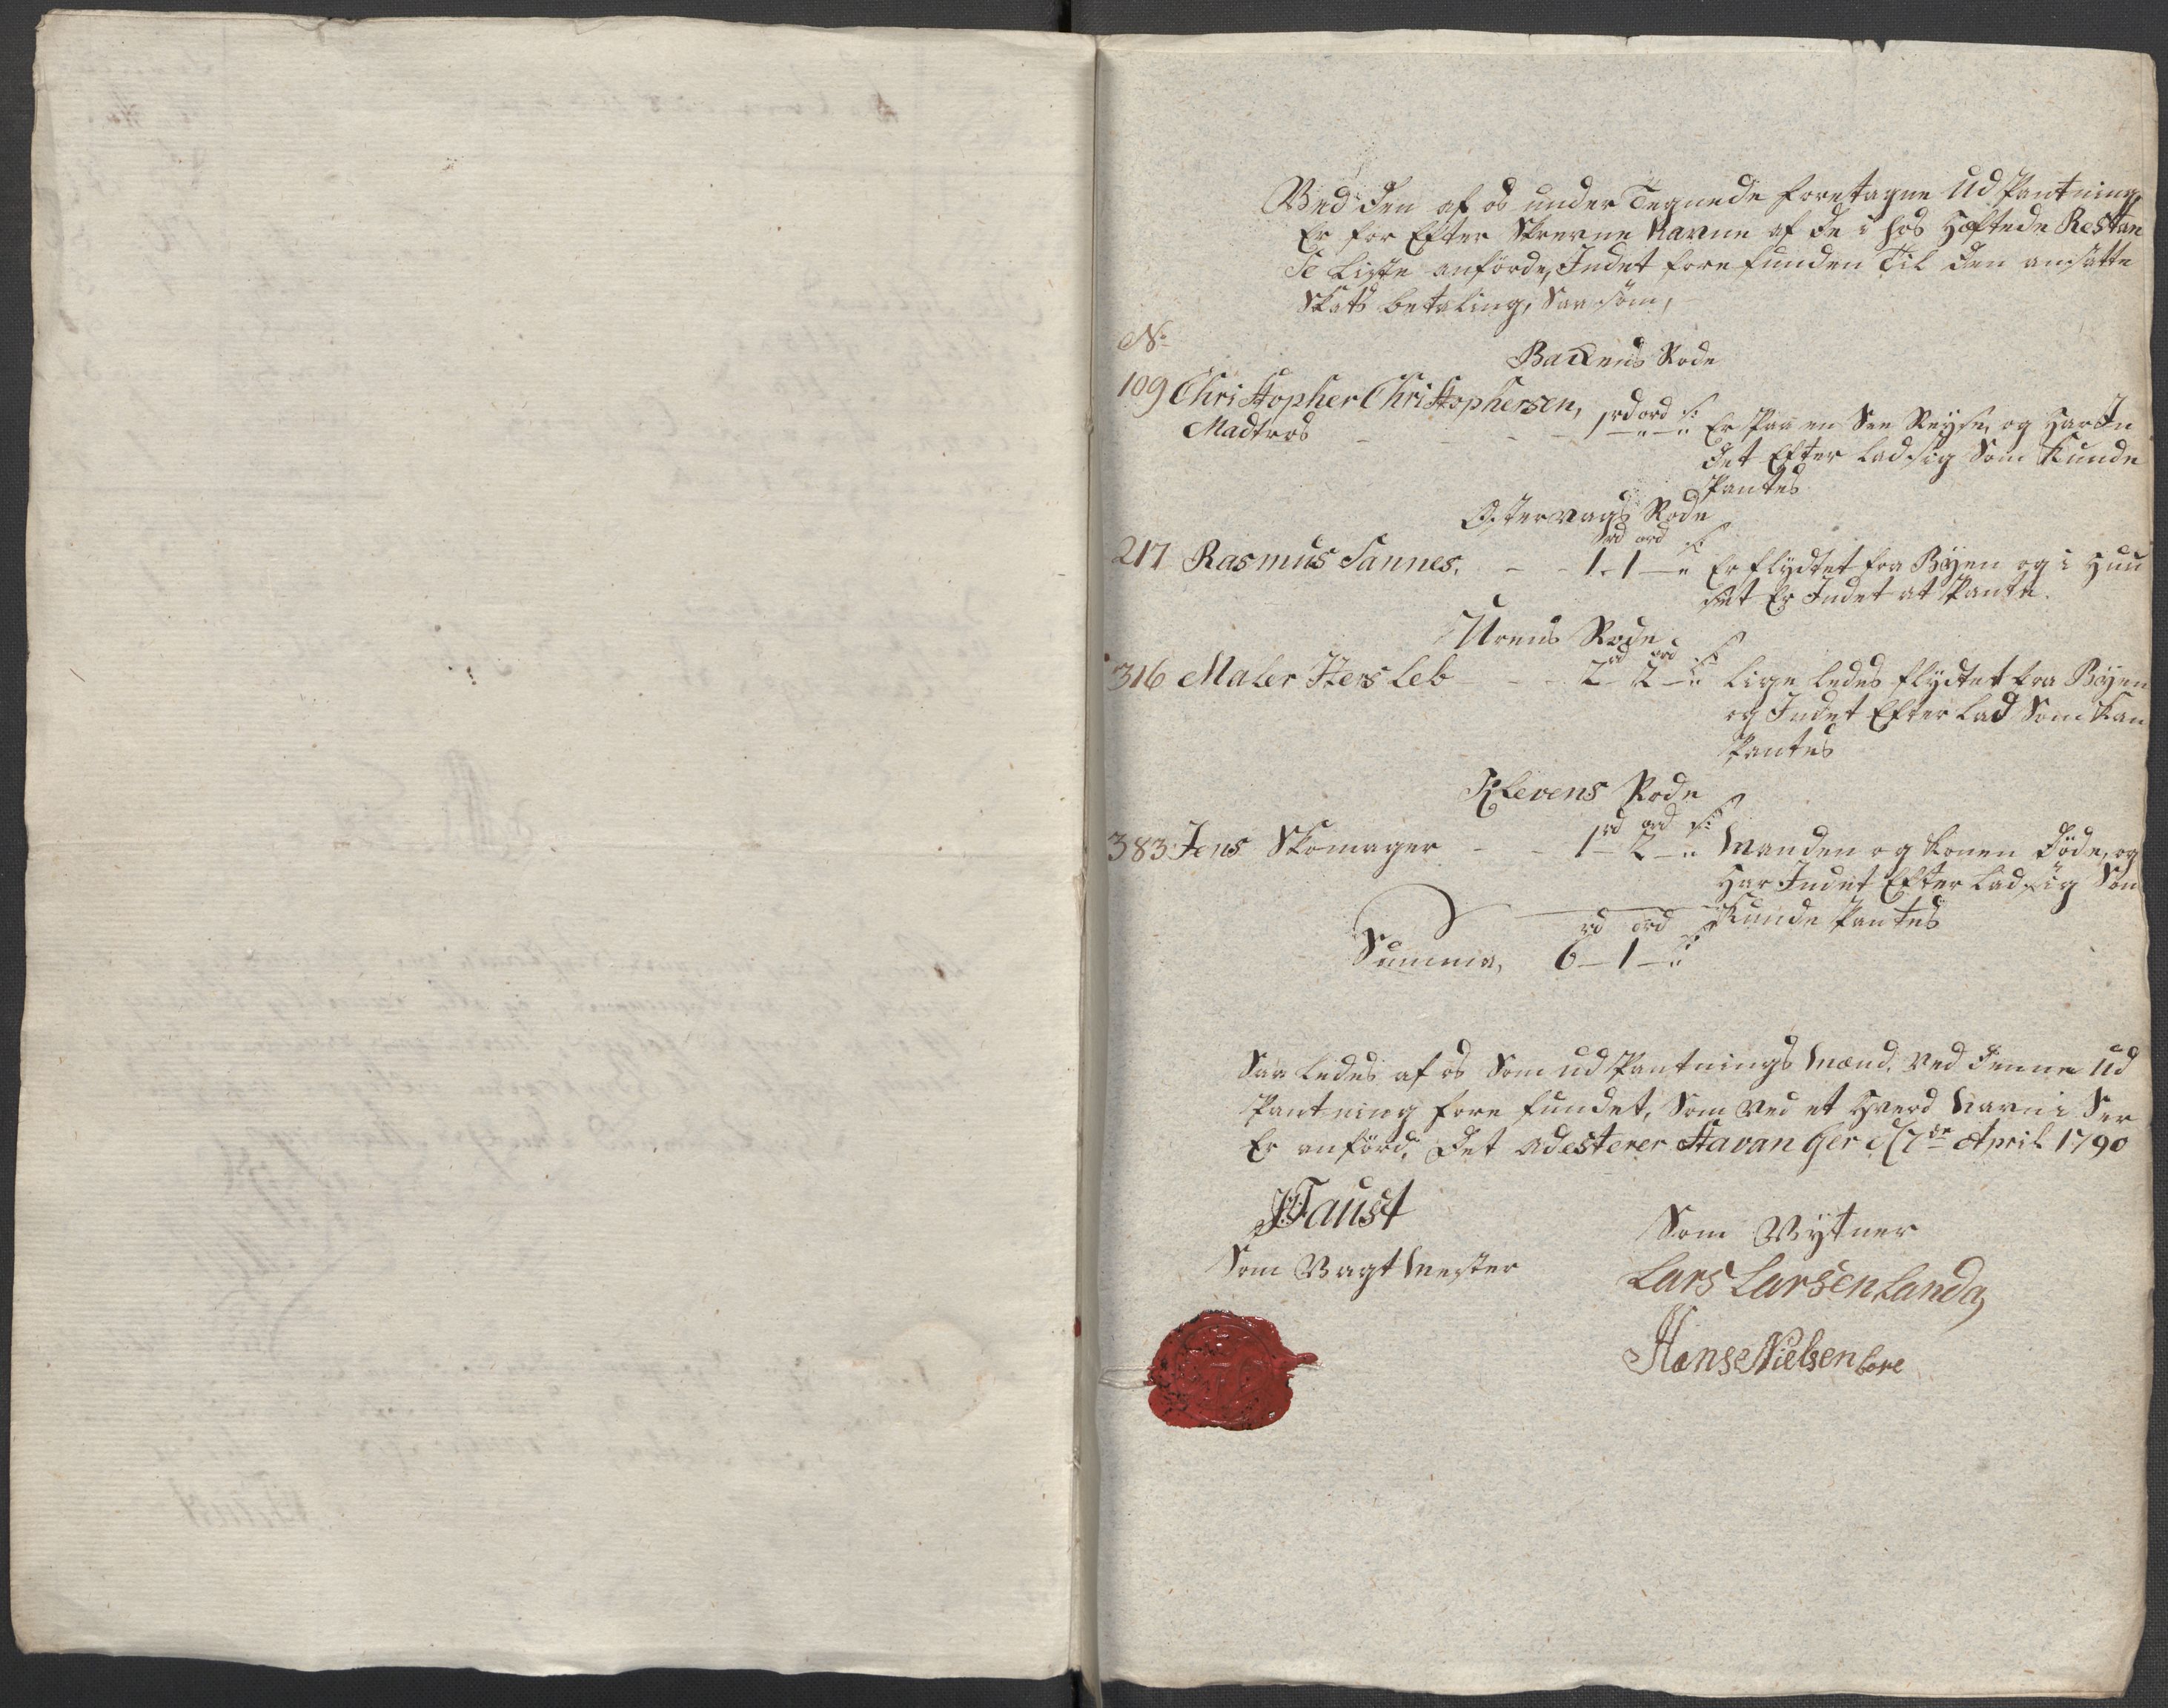 Ved den af os under Tegnede foretagne Ud Pantning
Er for Efter Skrevne Navne af de i hos Heftede Restan
Se Liste anförde, Indet fore funden Til den ansatte
Skats betaling, Saa som,
No
Backens Rode
109 Christopher Christophersen,
Madtros - - - 1 rd " ord " s: Er Paa en See Reyse, og Har In
det Efter lad sig Som Kunde
Pantes
Ostervags Rode
rd ord s:
217 Rasmus Sannes. - - 1 - 1 - " Er flydtet fra Byen og i Huu
set Er Indet at Pante.
Urens Rode
rd ord s:
316 Maler Hersleb - - - 2 - 2 - " Lige ledes flydtet fra Byen
og Indet Efter lad Som Kan
Pantes
Klevens Rode
rd ord s:
383 Jens Skomager - - 1 - 2 - " Manden og Konen Döde, og
Har Indet Efter lad sig Som
Kunde Pantes
rd ord s:
Summa, 6 - 1 - "
Saa ledes af os Som ud Pantnings Mænd, ved denne Ud
Pantning fore fundet, Som ved et Hverd Navn i Ser
Er anförd, Det Adesterer Stavanger d 7de April 1790
Faust
Som Vagt Mester
Som Vytner
Lars Larsen Landa,
Hanse Nielsen